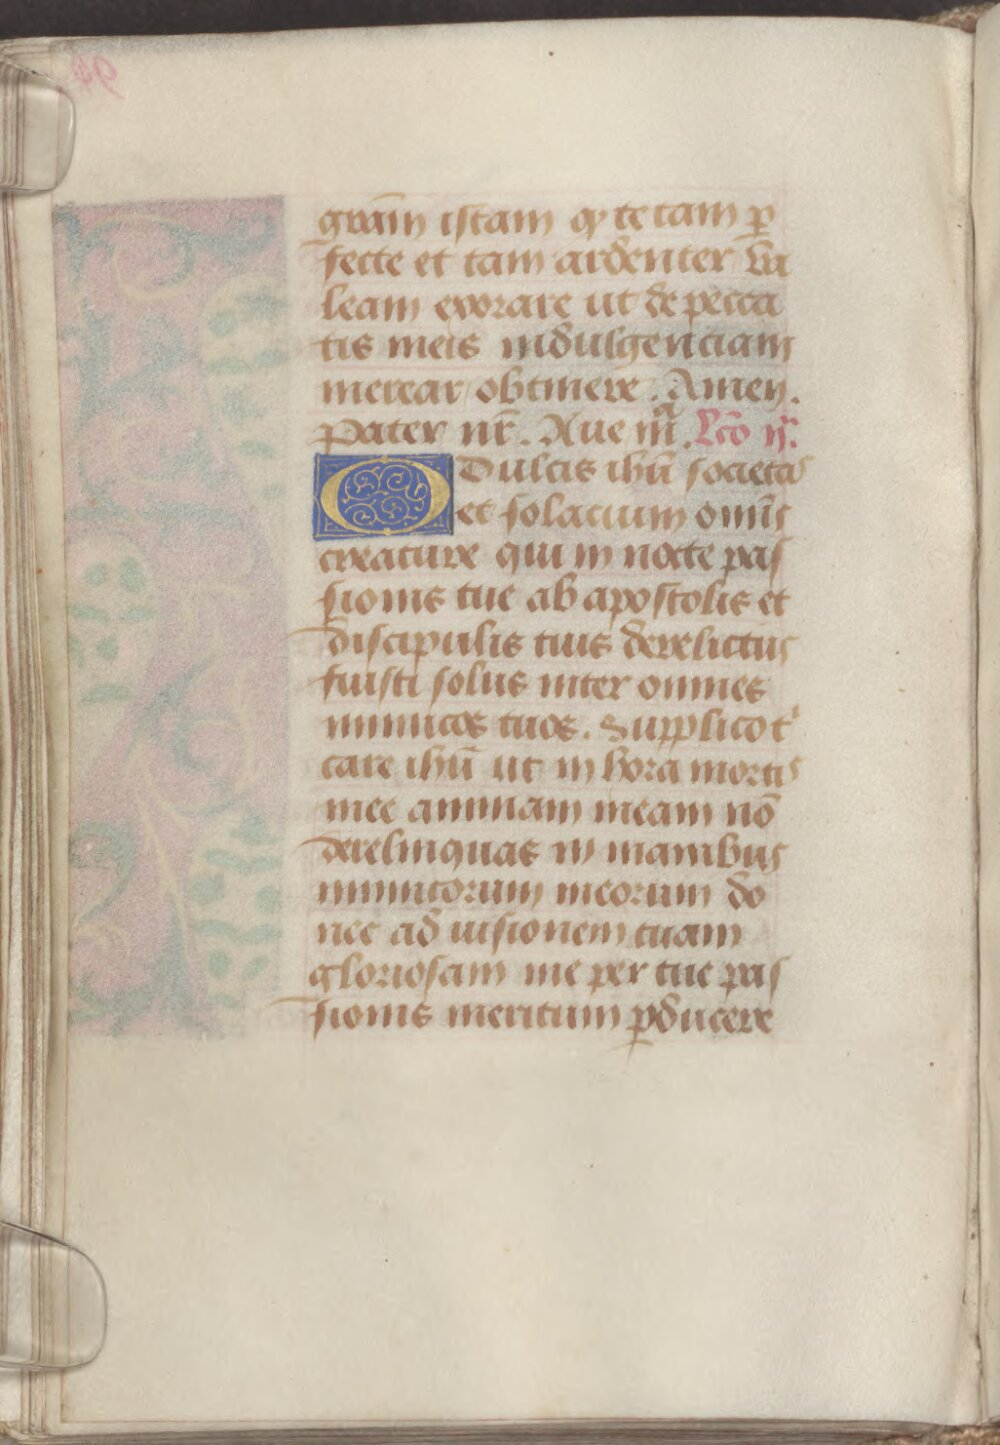 gr̄am istam qͥ te tam ꝑ
fecte et tam ardenter va
leam exorare ut de pecca
tis meis indulgenciam
merear obtinere. Amen.
Pater nr̄. Aue mͣ. Lc̄o ij.
O Dulcis ihū societas
et solacium omīs
creature qui in nocte pas
sionis tue ab apostolis et
discipulis tuis derelictus
fuisti solus inter omnes
inimicos tuos. Supplico tͥ
care ihū ut in hora mortis
mee animam meam nō
derelinquas in manibus
inimicorum meorum do
nec ad uisionem tuam
gloriosam me per tue pas
sionis meritum ꝑducere